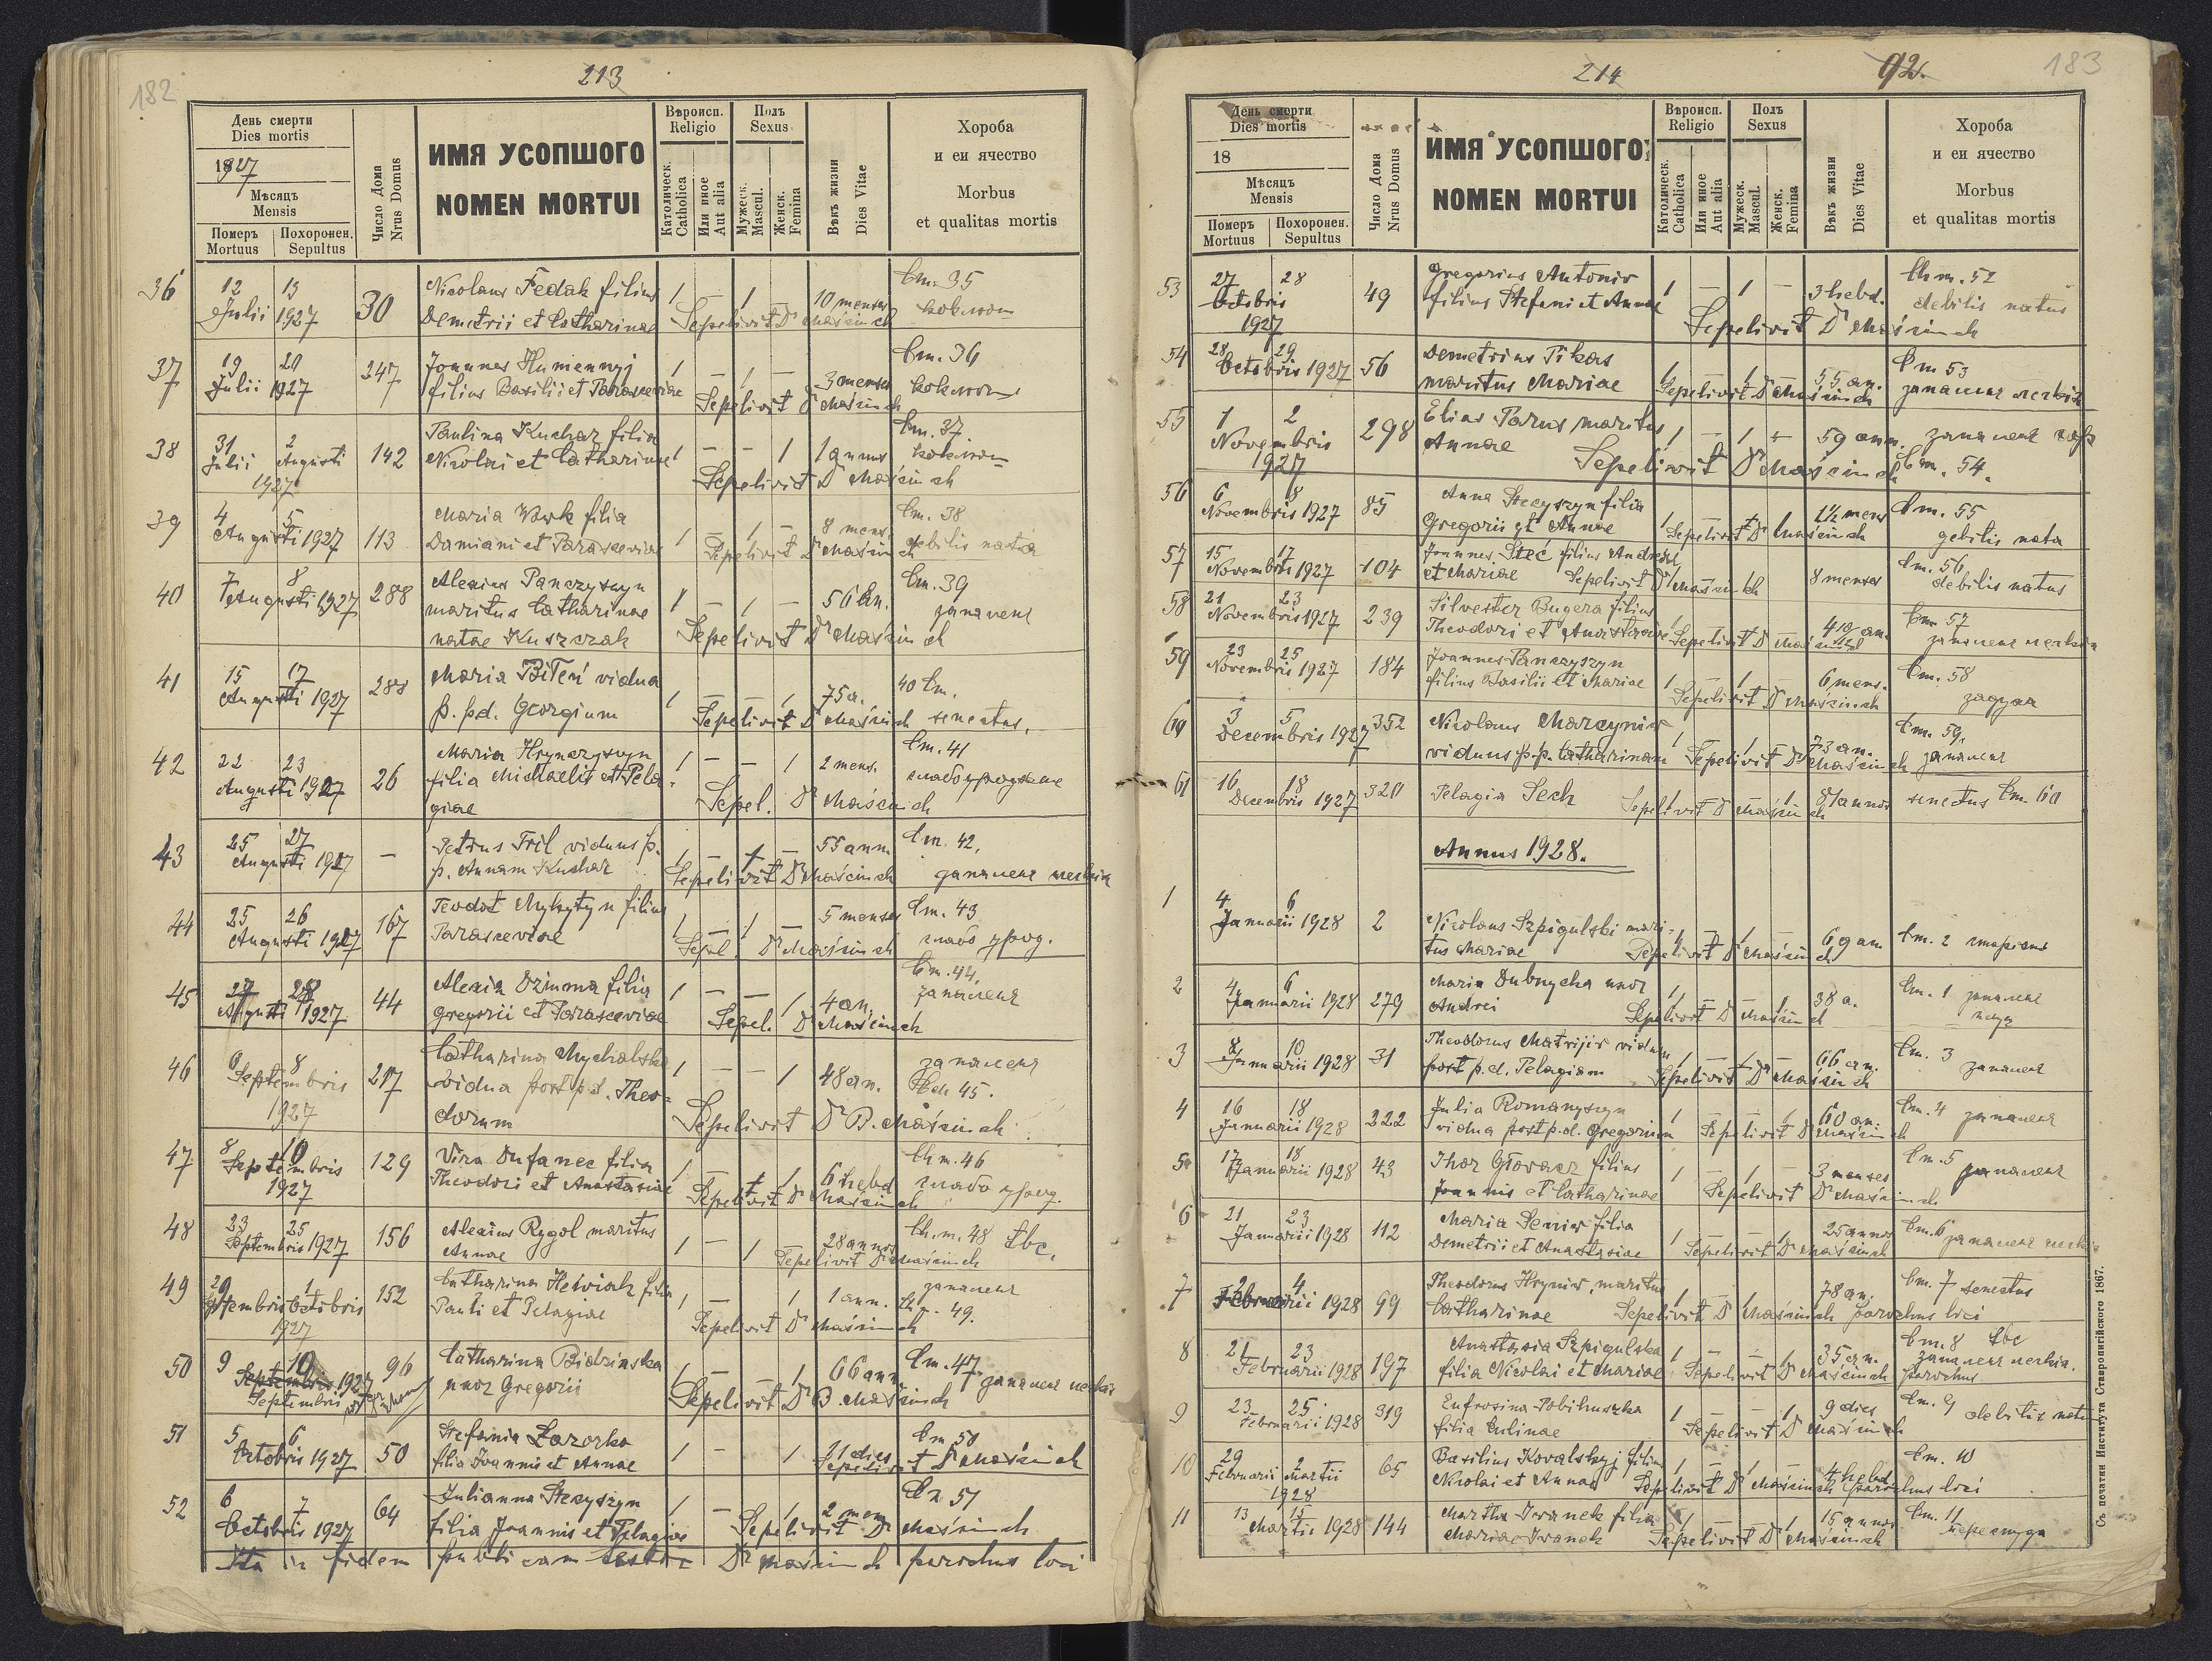 182
213
День смерти
Dies mortis
1927
Мѣсяцъ
Mensis
Померъ
Mortuus
Похоронен.
Sepultus
Число Дома
Nrus Domus
ИМЯ УСОПШОГО
NOMEN MORTUI
Вѣроисп.
Religio
Католическ.
Catholica
Или иное
Aut alia
Полъ
Sexus
Мужеск.
Mascul.
Женск.
Femina
Вѣкъ жизни
Dies Vitae
Хороба
и еи ячество
Morbus
et qualitas mortis
36 12 13 Julii 1927 30 Nicolaus Fedak filius 1 - 1 - 10 menses Cm. 35
Demetrii et Catharinae Sepelivit Dr Maścinch коклюш
37 19 20 Julii 1927 247 Joannes Humennyj 1 - 1 - 3 menses Cm. 36
filius Basilii et Parasceviae Sepelivit Dr Maścinch коклюш
38 31 Julii 2 Augusti 1927 142 Paulina Kuchar filia 1 - - 1 1 annus Cm. 37
Nicolai et Catharinae Sepelivit Dr Maścinch коклюш
39 4 5 Augusti 1927 113 Maria Vovk filia 1 - 1 - 8 mens. Cm. 38
Damiani et Parasceviae Sepelivit Dr Maścinch debilis nata
40 7 8 Augusti 1927 288 Alexius Panczyszyn 1 - 1 - 56 an. Cm. 39
maritus Catharinae запаленя
natae Kuszczak Sepelivit Dr Maścinch
41 15 17 Augusti 1927 288 Maria Biłeń vidua 1 - - 1 75 a. 40 Cm.
p. p.d. Georgium Sepelivit Dr Maścinch senectus.
42 22 23 Augusti 1927 26 Maria Hrynczyszyn 1 - - 1 2 mens. Cm. 41
filia Michaelis et Pela-
giae Sepel. Dr Maścinch
43 25 27 Augusti 1927 - Petrus Fril viduus p. 1 - 1 - 55 ann. Cm. 42.
p. Annam Kuchar Sepelivit Dr Maścinch запаленя легких
44 25 26 Augusti 1927 167 Teodot Mykytyn filius 1 - 1 - 5 menses Cm. 43
Parasceviae Sepel. Dr Maścinch слабо урод.
45 27 28 Augusti 1927 44 Alexia Dzimma filia 1 - - 1 4 an. Cm. 44
Gregorii et Parasceviae Sepel. Dr Maścinch запаленя
46 6 8 Septembris 1927 217 Catharina Mychalska 1 - - 1 48 an. запаленя
vidua post p.d. Theo- Cm. 45.
dorum Sepelivit Dr B. Maścinch
47 8 10 Septembris 1927 129 Vira Dufanec filia 1 - 1 6 hebd Cm. 46
Theodori et Anastasiae Sepelivit Dr Maścinch слабо урод.
48 23 25 Septembris 1927 156 Alexius Rygol maritus 1 - 1 28 annos Cm. 48 tbc.
Annae Sepelivit Dr Maścinch
49 29 Septembris 1 Octobris 1927 152 Catharina Hewiak filia 1 - 1 1 ann. запаленя
Pauli et Pelagiae Sepelivit Dr Maścinch 49.
50 9 10 Septembris 1927 96 Catharina Bidzinska 1 - 1 66 ann. Cm. 47
Septembris uxor Gregorii Sepelivit Dr B. Maścinch запаленя легких
51 5 6 Octobris 1927 50 Stefania Zazorka 1 - 1 21 dies Cm. 50
filia Joannis et Annae Sepelivit Dr Maścinch
52 6 7 Octobris 1927 64 Julianna Stecyszyn 1 - 1 2 men. Cm. 51
filia Joannis et Pelagiae Sepelivit Dr Maścinch
Ita in fidem publicam testor Dr Maścinch parochus loci
214
92.
183
День смерти
Dies mortis
18
Мѣсяцъ
Mensis
Померъ
Mortuus
Похоронен.
Sepultus
Число Дома
Nrus Domus
ИМЯ УСОПШОГО
NOMEN MORTUI
Вѣроисп.
Religio
Католическ.
Catholica
Или иное
Aut alia
Полъ
Sexus
Мужеск.
Mascul.
Женск.
Femina
Вѣкъ жизни
Dies Vitae
Хороба
и еи ячество
Morbus
et qualitas mortis
53 27 28 Octobris 1927 49 Gregorius Antoniv 1 - 1 - 3 hebd. Cm. 52
filius Stefani et Annae Sepelivit Dr Maścinch debilis natus
54 28 29 Octobris 1927 56 Demetrius Pikas 1 - 1 55 an. Cm 53
maritus Mariae Sepelivit Dr Maścinch запаленя легких
55 1 2 Novembris 1927 298 Elias Parus maritus 1 - 1 - 59 ann. запаленя
Annae Sepelivit Dr Maścinch Cm. 54.
56 6 8 Novembris 1927 85 Anna Stecyszyn filia 1 - 1 1½ mens Cm. 55
Gregorii et Annae Sepelivit Dr Maścinch debilis nata
57 15 17 Novembris 1927 104 Joannes Steć filius Andreae Cm. 56
et Mariae Sepelivit Dr Maścinch 8 menses debilis natus
58 21 23 Novembris 1927 239 Silvester Bugera filius Cm 57
Theodori et Anastasiae Sepelivit Dr Maścinch запаленя легких
59 23 25 Novembris 1927 184 Joannes Panczyszyn 6 mens. Cm. 58
filius Basilii et Mariae 1 - 1 - Sepelivit Dr Maścinch
60 3 5 Decembris 1927 352 Nicolaus Marcyniv 73 an. Cm. 59.
viduus p.p. Catharinam Sepelivit Dr Maścinch запаленя
61 16 18 Decembris 1927 320 Pelagia Sech Sepelivit Dr Maścinch 87 annos senectus Cm. 60
Annus 1928.
1 4 6 Januarii 1928 2 Nicolaus Szpigulski mari- 69 an Cm. 2
tus Mariae Sepelivit Dr Maścinch
2 4 6 Januarii 1928 279 Maria Dubnycka uxor 38 a. Cm. 1 запаленя
Andrei Sepelivit Dr Maścinch
3 8 10 Januarii 1928 31 Theodorus Matvijiv viduus 66 an. Cm. 3
post p.d. Pelagiam Sepelivit Dr Maścinch запаленя
4 16 18 Januarii 1928 222 Julia Romanyszyn 60 an. Cm. 4 запаленя
vidua post p.d. Gregorium Sepelivit Dr Maścinch
5 17 18 Januarii 1928 43 Ihor Głovacz filius 3 menses Cm. 5 запаленя
Joannis et Catharinae Sepelivit Dr Maścinch
6 21 23 Januarii 1928 112 Maria Seniv filia 25 annos Cm. 6
Demetrii et Anastasiae Sepelivit Dr Maścinch запаленя легких
7 2 4 Februarii 1928 99 Theodorus Hryniv, maritus 78 an. Cm. 7 senectus
Catharinae Sepelivit Dr Maścinch parochus loci
8 21 23 Februarii 1928 197 Anastasia Szpigulska 35 an. Cm. 8 tbc
filia Nicolai et Mariae Sepelivit Dr Maścinch parochus запаленя легких.
9 23 25 Februarii 1928 319 Eufrosina Pobihuszka 9 dies Cm. 9
filia Eulinae Sepelivit Dr Maścinch debilis nata
10 29 Februarii 2 Martii 1928 65 Basilius Kovalskyj filius 4 hebd. Cm. 10
Nicolai et Annae Sepelivit Dr Maścinch parochus loci
11 13 15 Martii 1928 144 Martha Ivanek filia 15 annos Cm. 11
Mariae Ivanek Sepelivit Dr Maścinch
Съ печатни Института Ставропигійского 1867.